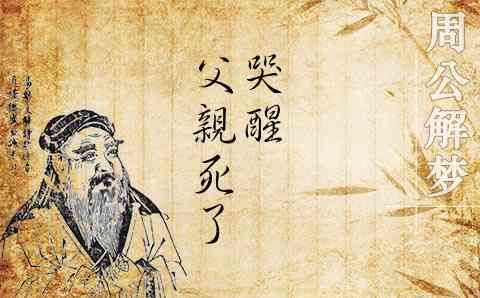 周公解梦
哭醒
父親死了